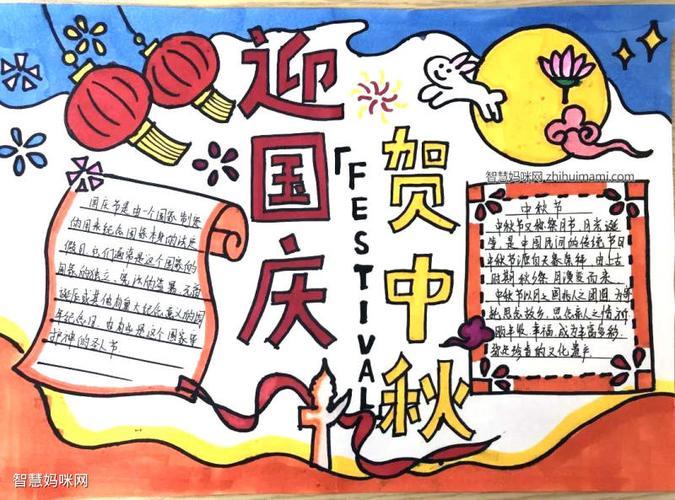 迎国庆
「FESTIVAL
贺中秋
智慧妈咪网.zhihuimami.com
国庆节是由一个国家制定
的用来纪念国家本身的法定
假日,它们通常是这个国家的
国家的独立、宪法的签署、元首
诞辰或其他有重大纪念意义的周
年纪念日,也有些是这个国家守
护神的圣人节
中秋节
中秋节又称祭月节、月光诞
生是中国民间的传统节日
中秋节源自天象崇拜,由上古
时期秋夕祭月演变而来.
中秋节以月之圆兆人之团圆,为寄
托思念故乡,思念亲人之情,祈
盼丰收、幸福,成为丰富多彩、
弥足珍贵的文化遗产
智慧妈咪网